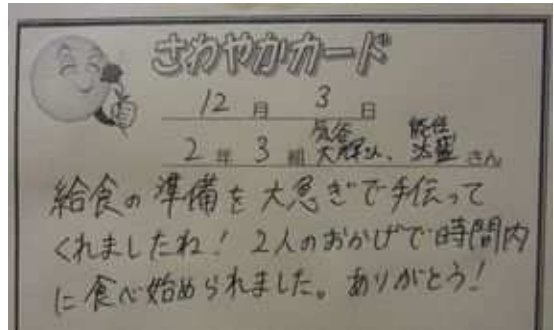 さわやかカード
12月3日
2年3組 さん
給食の準備を大急ぎで手伝って
くれましたね！2人のおかげで時間内
に食べ始められました。ありがとう！